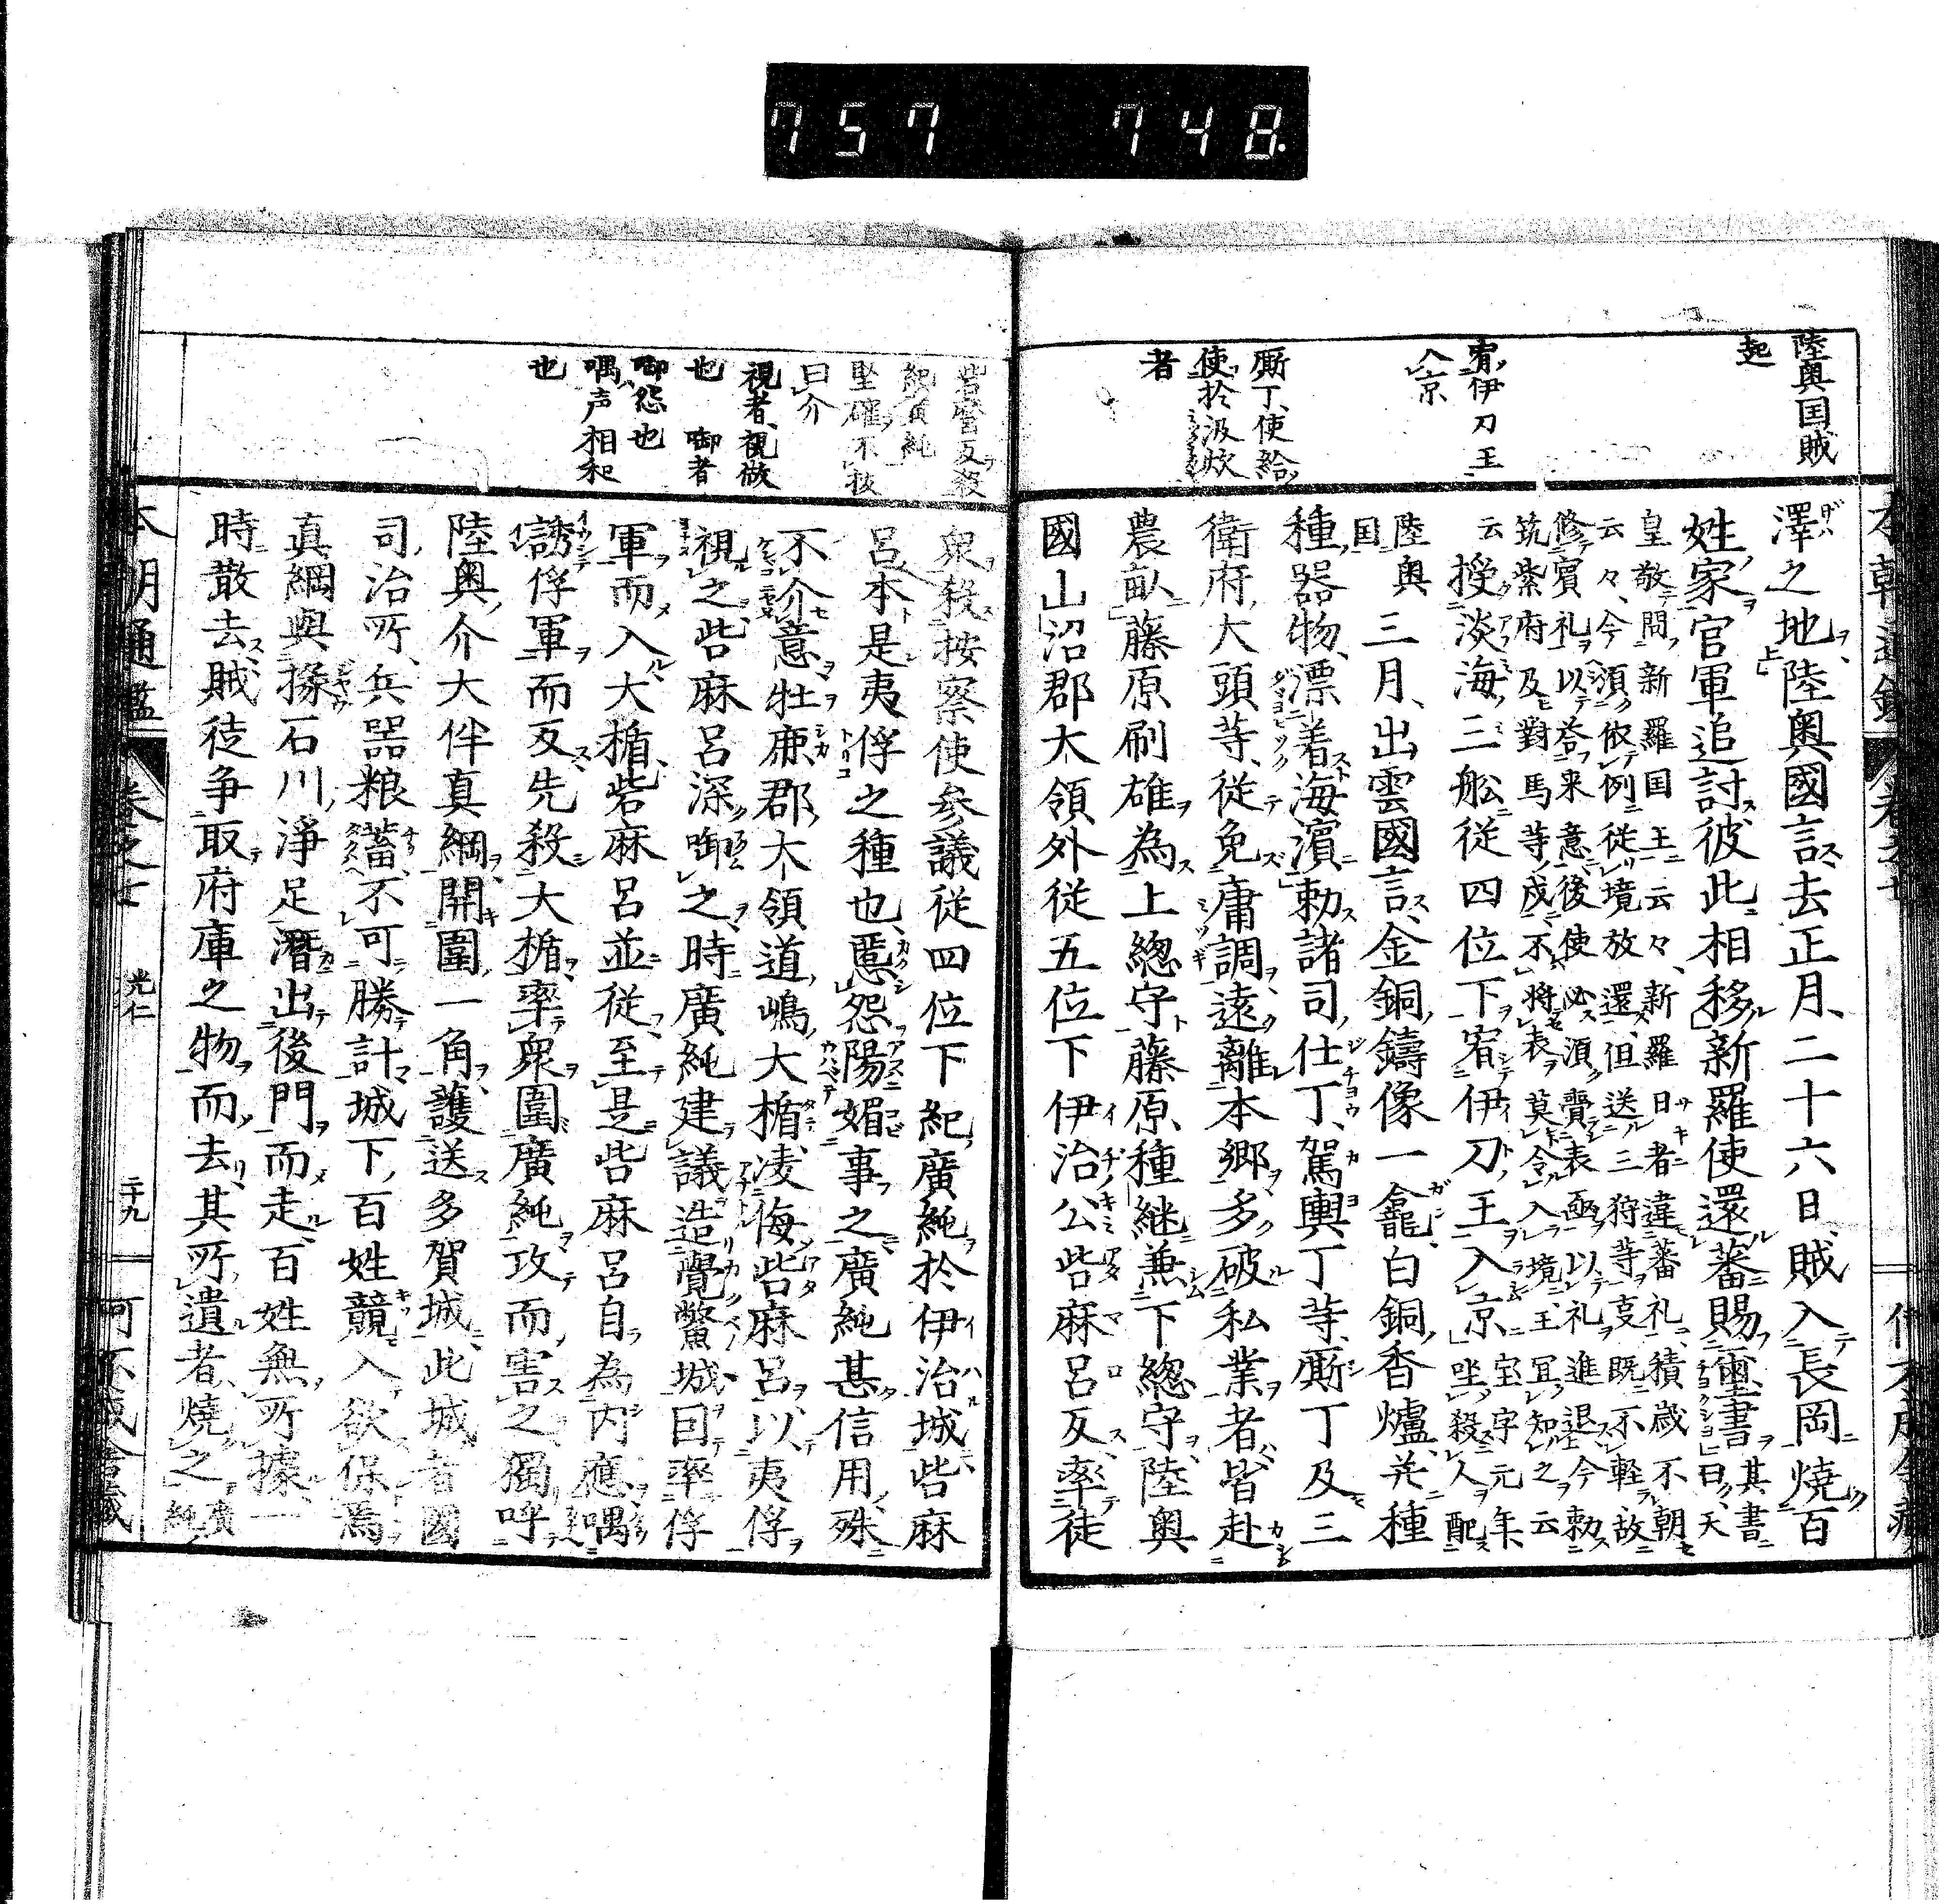 757 748.
陸奥国賊
起
宥伊刀王
入京
厮丁、使給
使於汲炊
者
澤之地、陸奥國言、去正月、二十六日、賊入長岡燒百
姓家官軍追討、彼此相移、新羅使還蕃賜璽書其書
曰、天
皇敬問新羅国王云々、新羅日者違蕃礼積歳不朝
云々、今須依例従境放還、但送三狩等支既不軽故
修賓礼以荅来意後使必須賷表凾以礼進退今勅
筑紫府及對馬等戍不将表莫令入境王宜知之云
云 授淡海三舩従四位下宥伊刀王入京坐殺人配
宝字元年、
陸奥
国 三月、出雲國言、金銅鑄像一龕、白銅香爐、并種
種器物、漂着海濱勅諸司仕丁、駕輿丁等、厮丁及三
衛府大頭等、従免庸調、遠離本郷、多破私業者、皆赴
農畝、藤原刷雄為上總守、藤原種継兼下總守、陸奥
國山沼郡大領外従五位下伊治公呰麻呂反、率徒
呰麿反殺
紀廣純
堅確不抜
曰介
視者、視倣
也 啣者
啣怨也
喁声相和
也
衆殺按察使参議従四位下紀廣純於伊治城、呰麻
呂本是夷俘之種也、慝怨、陽媚事之、廣純甚信用、殊
不介意牡鹿郡大領道嶋大楯、凌侮呰麻呂、以夷俘
視之、呰麻呂深啣之、時廣純建議造覺鱉城、囙率俘
軍而入大楯、呰麻呂並従、至是呰麻呂自為内應、喁
誘俘軍而反、先殺大楯、率衆圍廣純、攻而害之、獨呼
陸奥介大伴真綱、開圍一角、護送多賀城、此城者國
司治所、兵噐粮蓄、不可勝計、城下百姓競入欲保焉
真綱與掾石川淨足潛出後門而走、百姓無所據、一
時散去、賊徒争取府庫之物而去、其所遺者、燒之、廣
純
本朝通鑑 巻之十 光仁 二十九